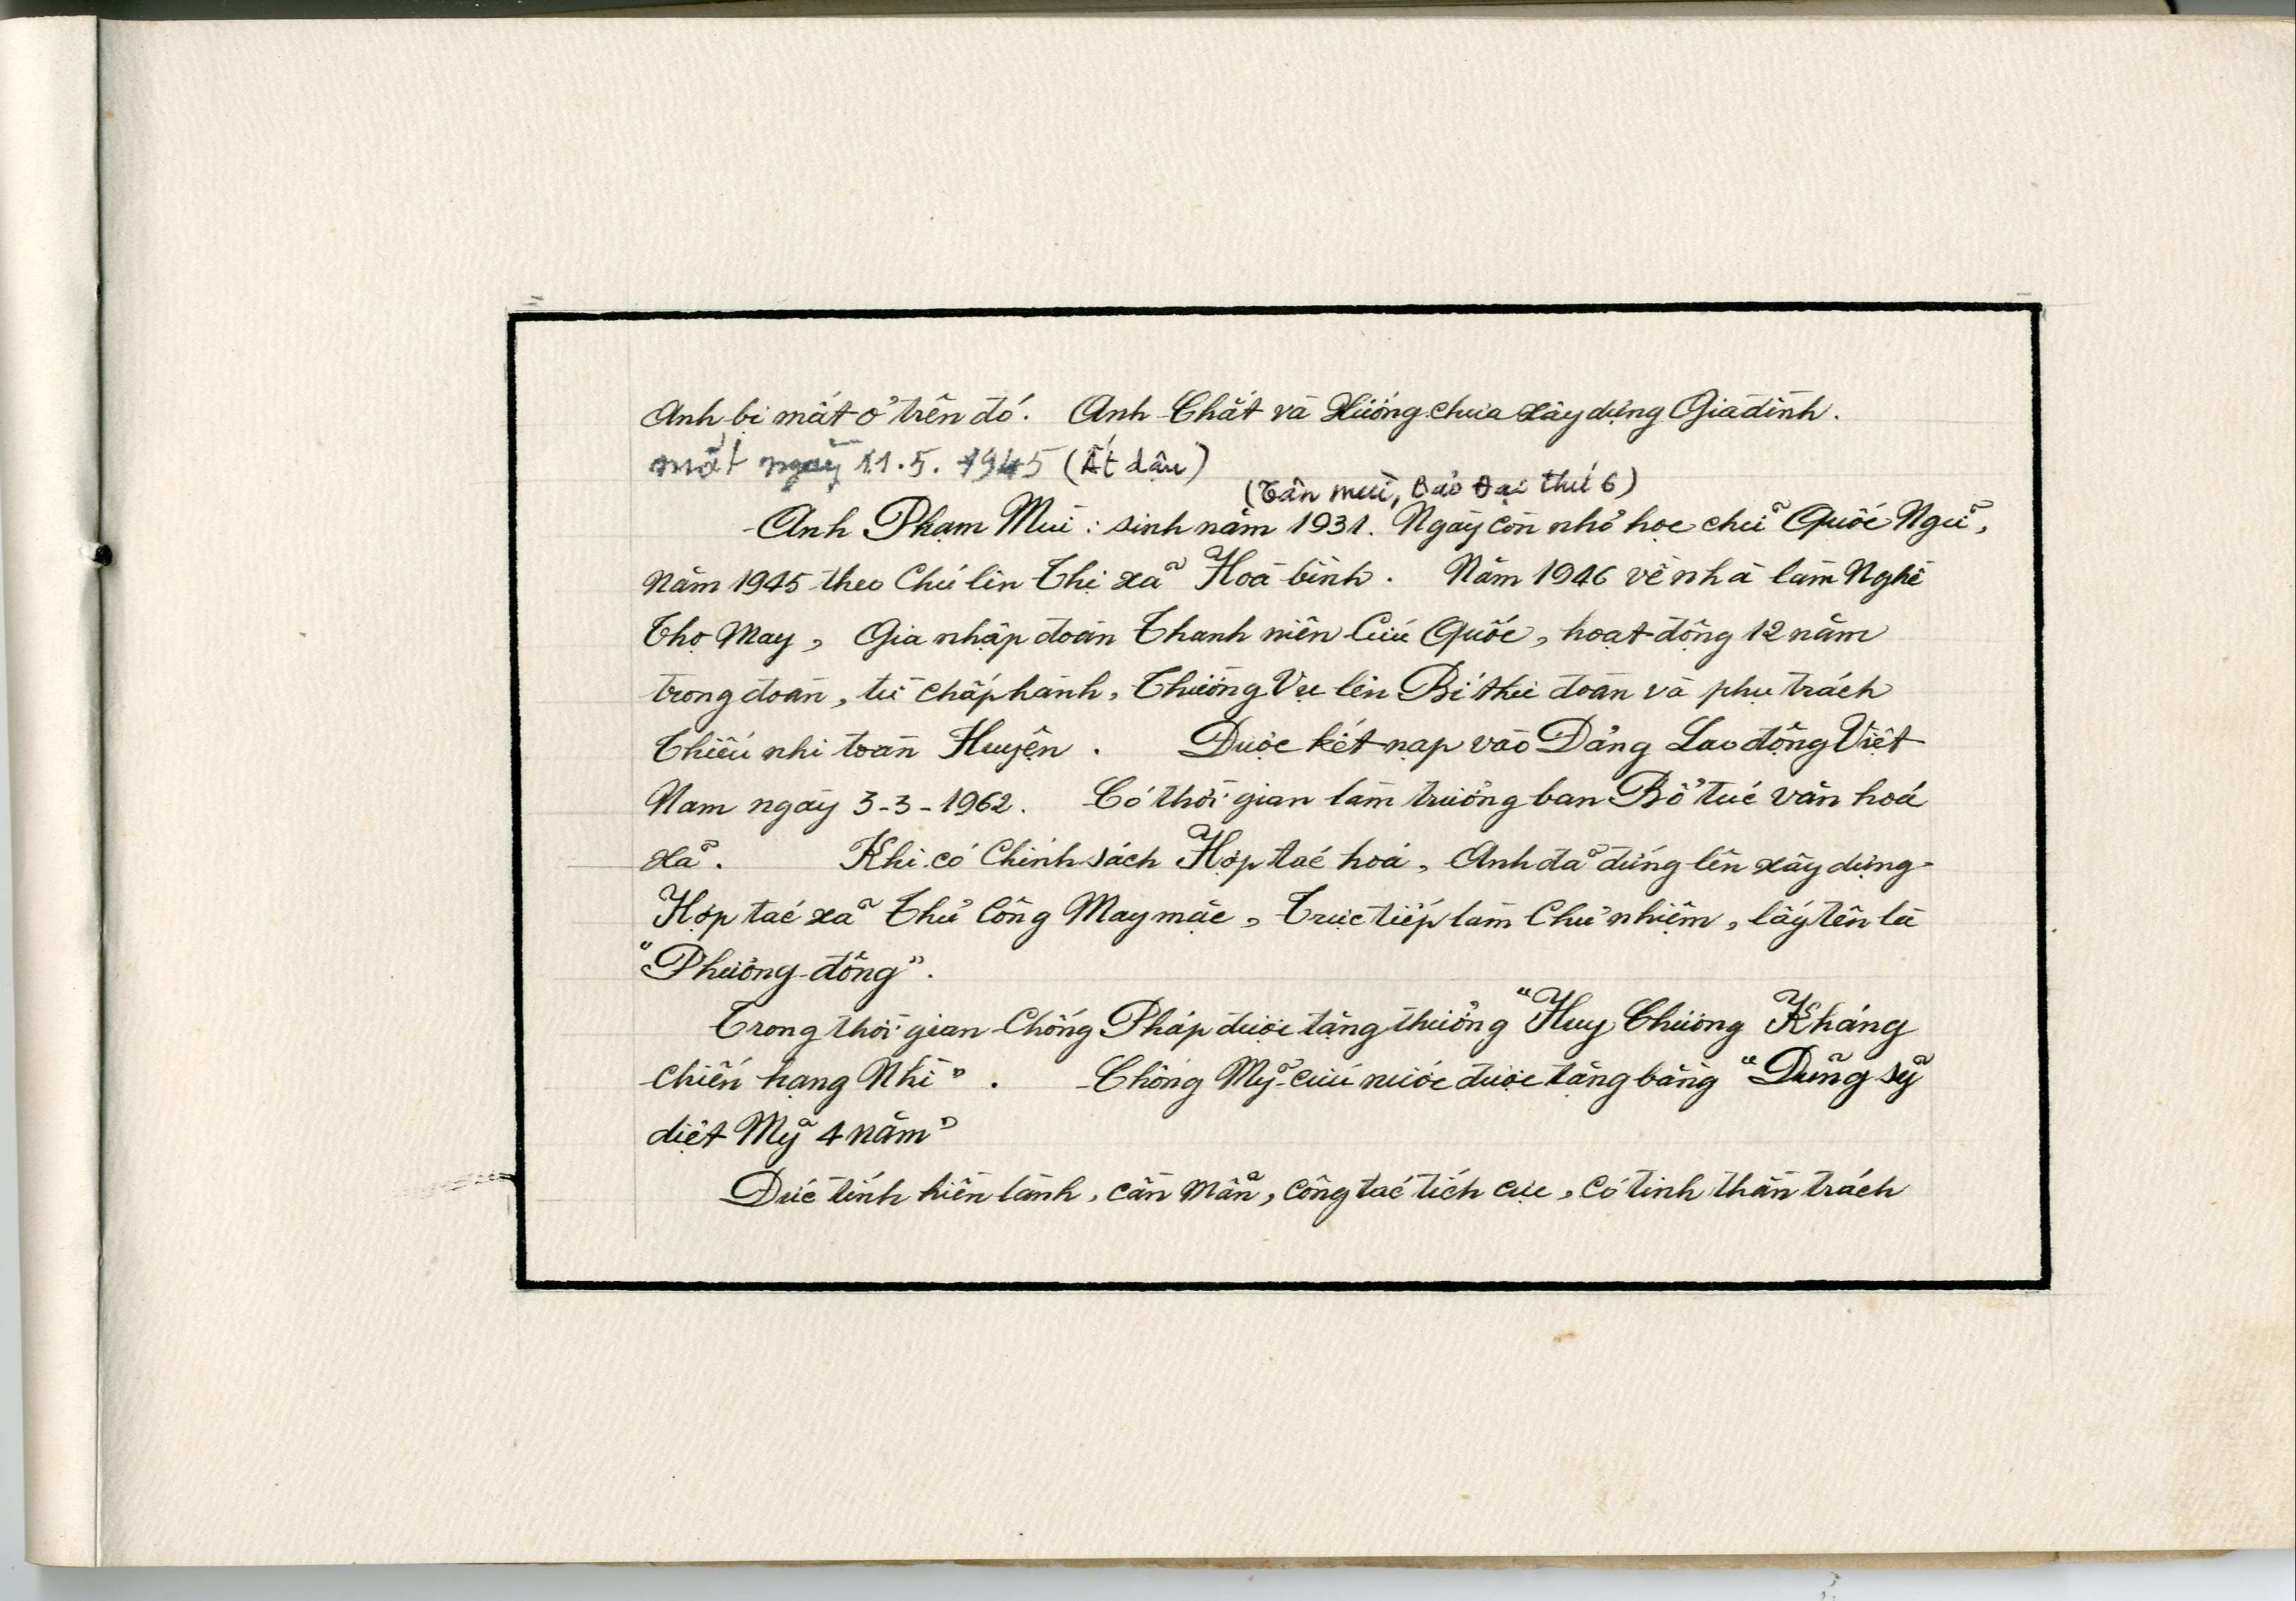 Anh bị mất ở trên đó. Anh Chắt và Xướng chưa xây dựng Gia đình.
mất ngày 11.5.1945 (Ất dậu)
(Tân mùi, Bảo Đại thứ 6)
- Anh Phạm Mùi : sinh năm 1931. Ngày còn nhỏ học chữ Quốc Ngữ,
Năm 1945 theo Chú lên Thị xã Hoà bình. Năm 1946 về nhà làm Nghề
Thợ May, Gia nhập đoàn Thanh niên Cứu Quốc, hoạt động 12 năm
trong đoàn, từ chấp hành, Thường Vụ lên Bí thư đoàn và phụ trách
Thiếu nhi toàn Huyện. Được kết nạp vào Đảng Lao động Việt
Nam ngày 3-3-1962. Có thời gian làm trưởng ban Bổ túc văn hoá
xã. Khi có Chính sách Hợp tác hoá, Anh đã đứng lên xây dựng
Hợp tác xã Thủ Công May mặc, Trực tiếp làm Chủ nhiệm, lấy tên là
"Phương-đông".
Trong thời gian Chống Pháp được tặng thưởng "Huy Chương Kháng
chiến hạng Nhì". Chống Mỹ cứu nước được tặng bằng "Dũng sỹ
diệt Mỹ 4 năm"
Đức tính hiền lành, cần mẫn, công tác tích cực, có tinh thần trách